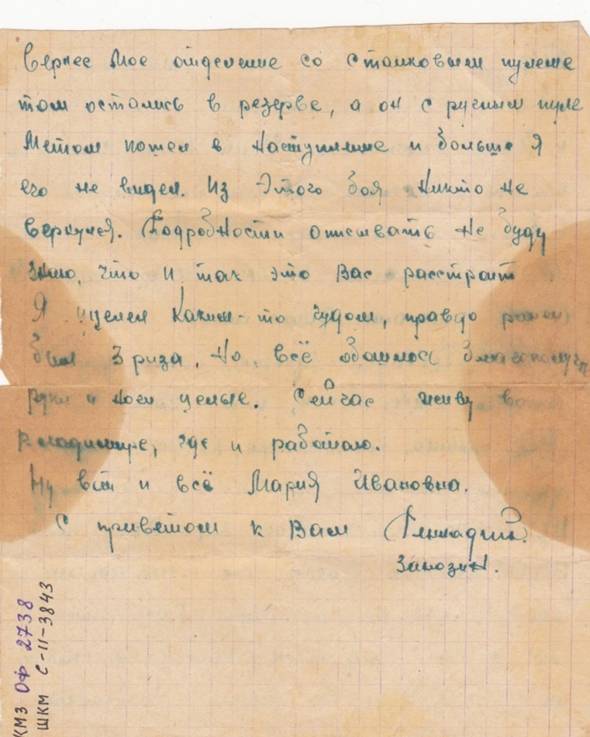 вернее мое отделение со станковым пулеме
том остались в резерве, а он с ручным пуле
метом пошел в наступление и больше я
его не видел. Из этого боя никто не
вернулся. Подробности описывать не буду
знаю, что и так это Вас расстроит
Я уцелел каким-то чудом, правда ранен
был 3 раза. Но, всё обошлось благополучн
руки и ноги целые. Сейчас живу во
Владимире, где и работаю.
Ну вот и всё Мария Ивановна.
С приветом к Вам Геннадий
Занозин.
КМЗ ОФ 2738
ШКМ С-11-3843